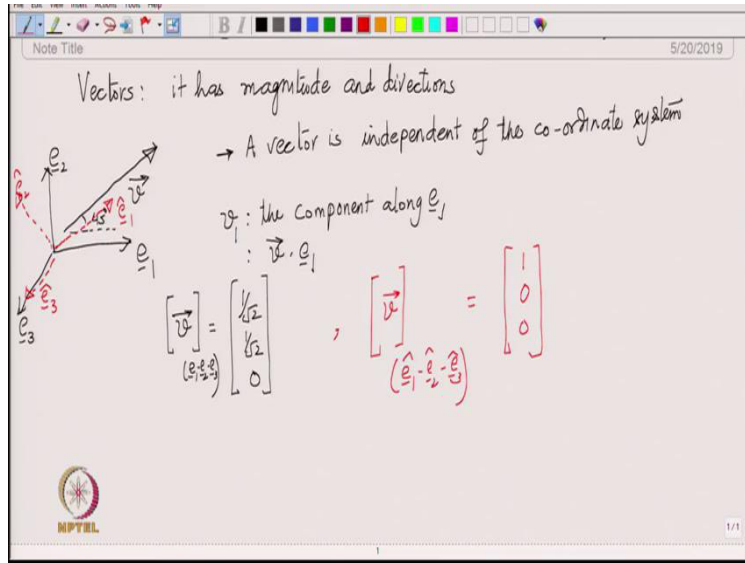 File Edit View Insert Actions Tools Help
B I
Note Title 5/20/2019
Vectors: it has magnitude and directions
→ A vector is independent of the co-ordinate system
e₂
ê₂
v⃗
45°
ê₁
e₁
ê₃
e₃
v₁: the component along e₁
: v⃗ . e₁
[v⃗] = [1/√2 1/√2 0] , [v⃗] = [1 0 0]
(e₁-e₂-e₃) (ê₁-ê₂-ê₃)
NPTEL
1/1
1